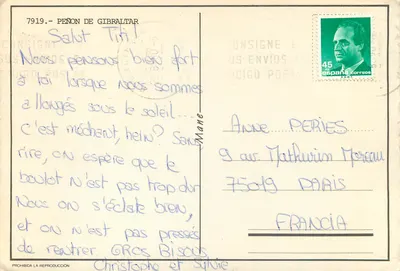 7919.- PEÑON DE GIBRALTAR
Salut Titi!
Nous pensons bien fort
à toi lorsque nous sommes
allongés sous le soleil...
c'est méchant, hein? Sans
rire, on espère que le
boulot n'est pas trop dur
Nous on s'éclate bien,
et on n'est pas pressés
de rentrer. GROS BISOUS
Christophe et Sylvie
PROHIBIDA LA REPRODUCCIÓN
CONSIGNE
SUS ENVIOS
CODIGO POS
45
ESPAÑA correos
ANNE PERIES
9 av. Mathurin Moreau
75019 PARIS
FRANCIA